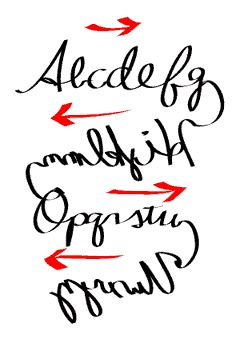 Abcdefg
Hijklmn
Opqrstu
Vwxyz